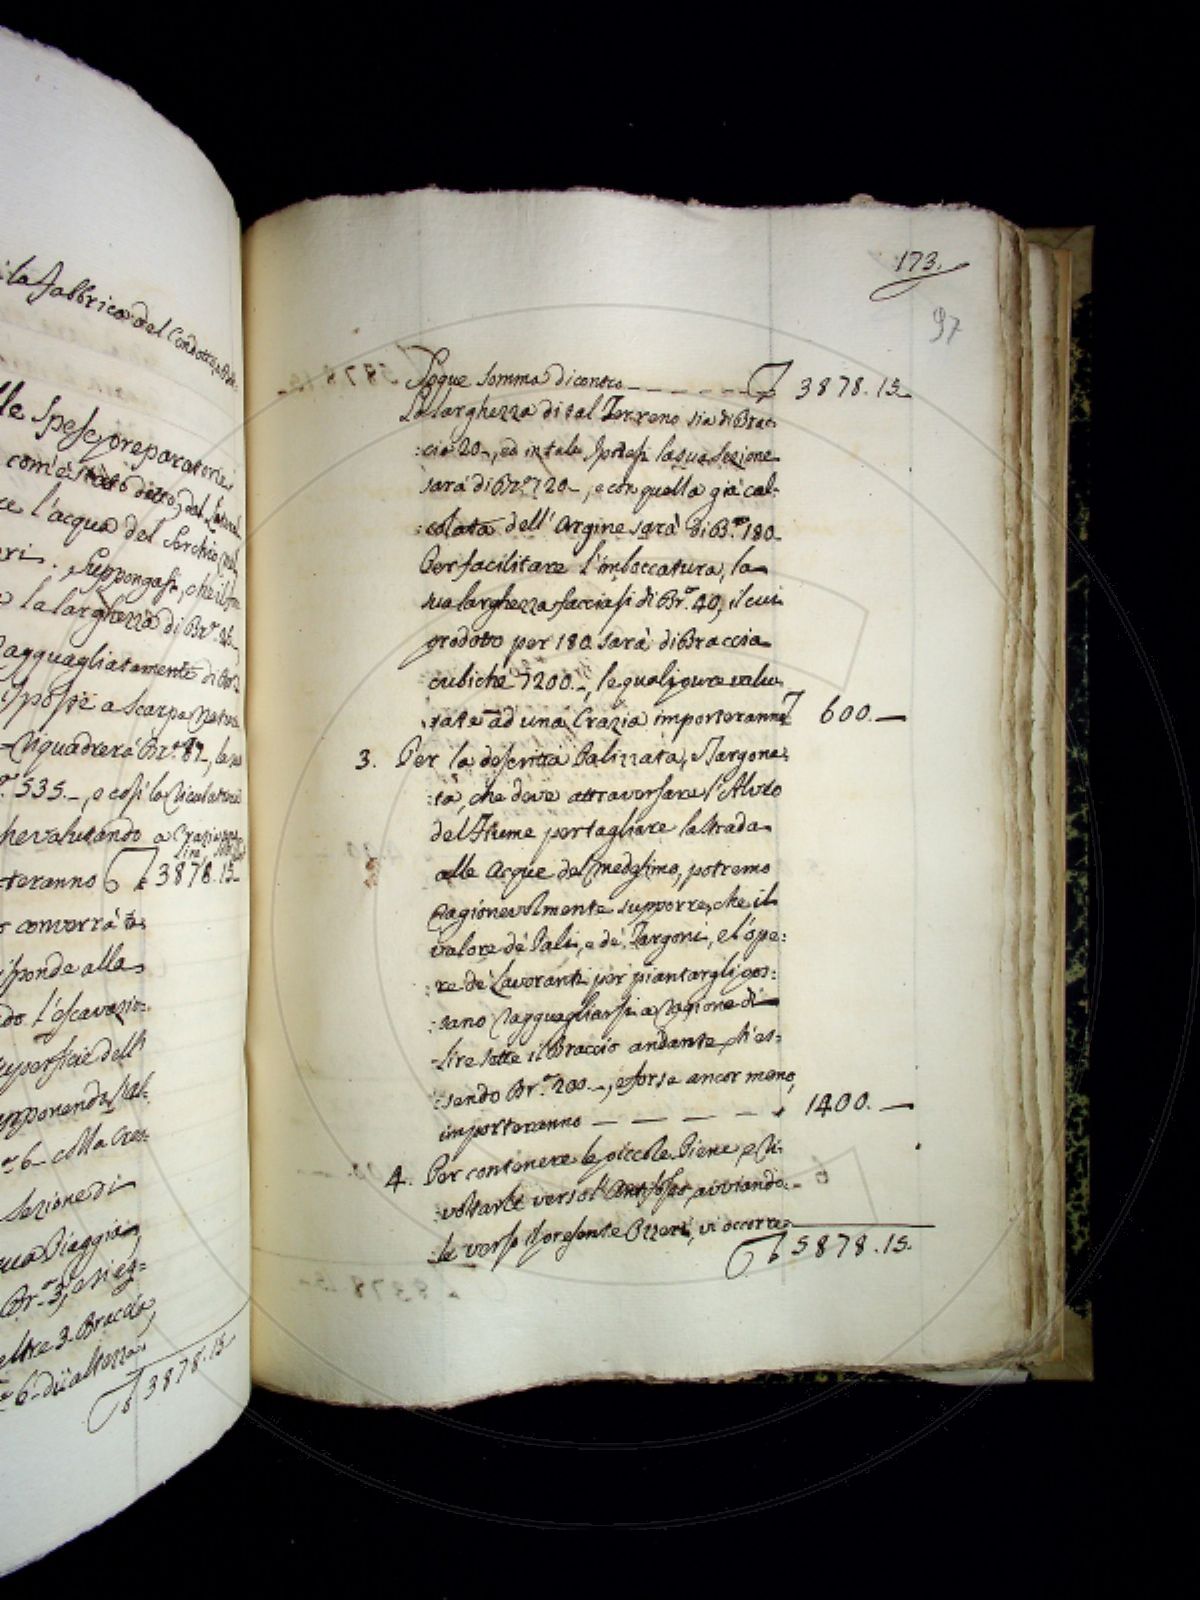 la fabbrica del Condotto
lle Spese preparatorie
com'è stato detto, dal
ce l'acqua del Serchio
eri. Suppongasi, che il
la larghezza di Br.e
agguagliatamente di
a scarpa
riquadrerà Br.e 87
535.-, e così
he valutando a Crazie
Lire
teranno 3878.15.
converrà
isponde alla
do l'escavazio=
uperficie dell'
upponendosi
6 colla
Sezione di
ua Piaggia
Br.e 3,
oltre 3 Braccia,
6 di altezza
3878.15
173.
97
Segue somma di contro 3878.15.
La larghezza di tal Terreno sia di Brac=
:cia 20-, ed in tale Ipotesi la sua Sezione
sarà di Br.e 120-, e con quella già cal=
:colata dell'Argine sarà di B.e 180
Per facilitare l'imboccatura, la
sua larghezza facciasi di Br.e 40, il cui
prodotto per 180 sarà di Braccia
cubiche 7200.-, le quali pure valu
tate ad una Crazia importeranno 600.—
3. Per la descritta Palizzata, e Targona
:ta, che deve attraversare l'Alveo
del Fiume per tagliare la strada
alle Acque del medesimo, potremo
ragionevolmente supporre, che il
valore de' Pali, e de' Targoni, e l'ope:
:re de' Lavoranti per piantargli pos:
:sano ragguagliarsi a ragione di
Lire sette il Braccio andante, ch'es:
:sendo Br.e 200.-, e forse ancor meno,
importeranno — — — — 1400.—
4. Per contenere le piccole Piene, e ri
voltarle verso l' avviando:
:le verso il presente Ozzeri, vi occorre
5878.15.